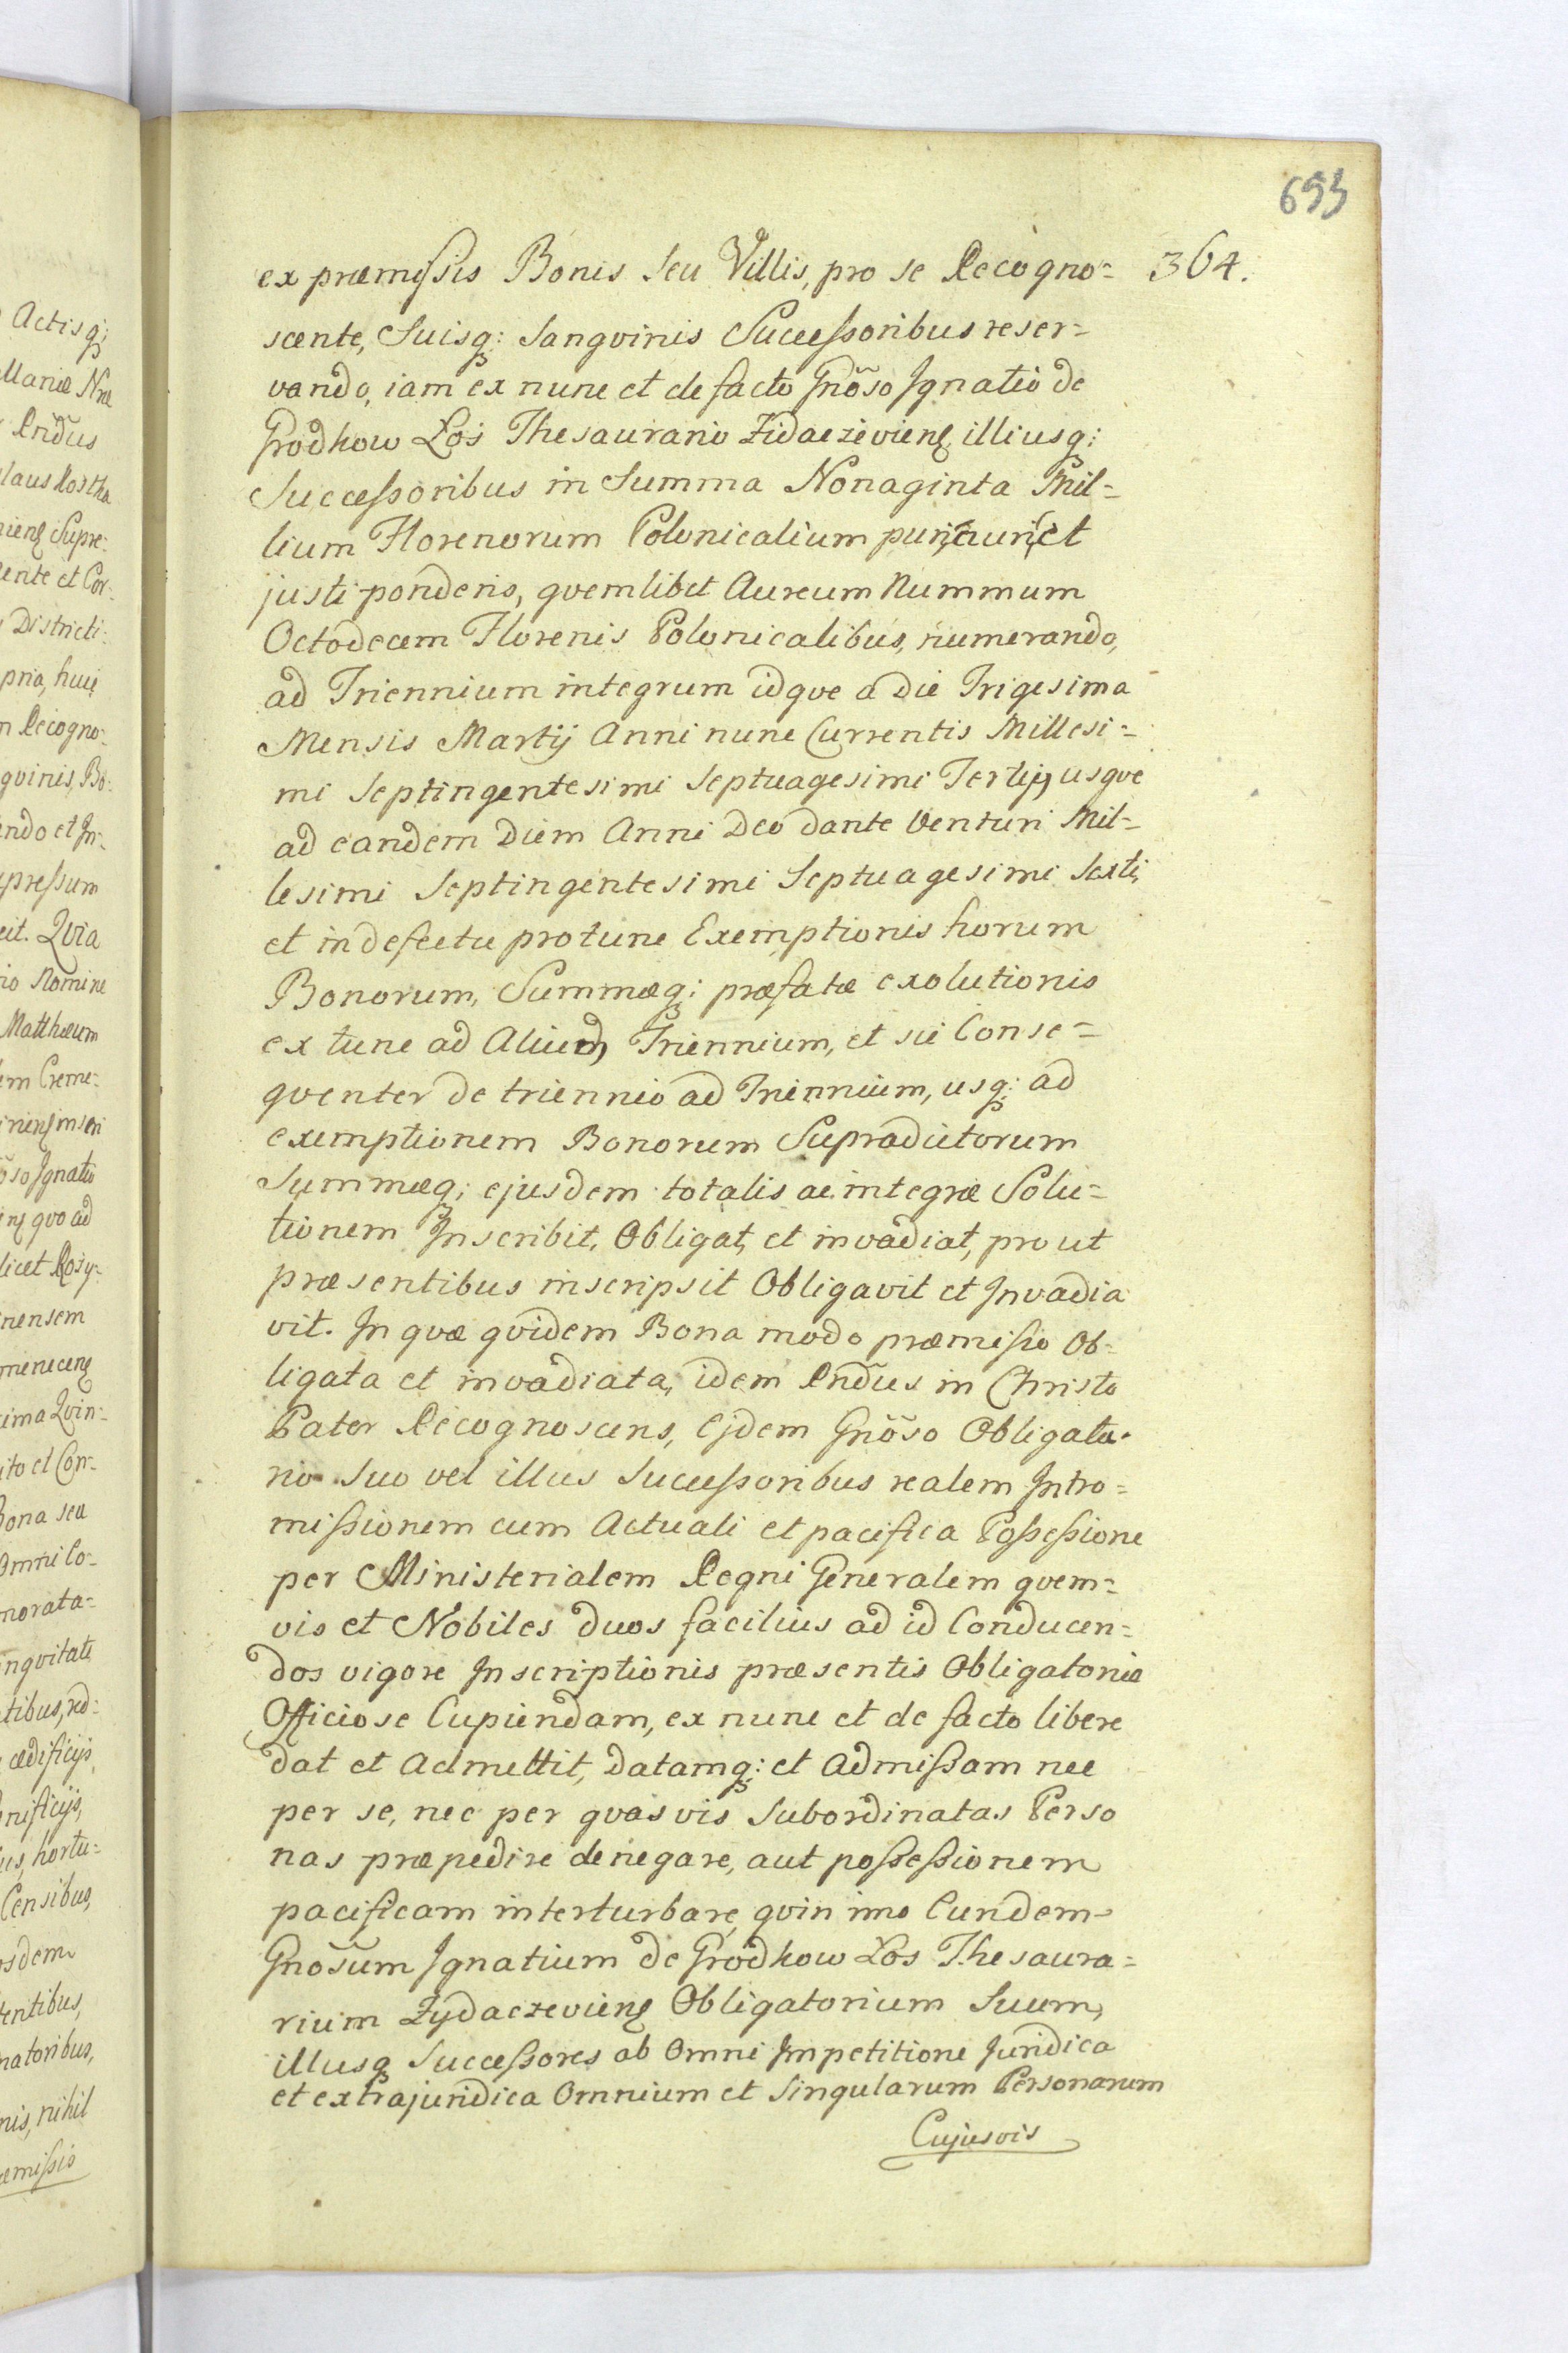 693
364.
ex præmissis Bonis seu Villis, pro se Recogno=
scente, Suisq; Sangvinis Successoribus reser=
vando, iam ex nunc et de facto Gnõso Ignatio de
Grodkow Łoś Thesaurario Zidaczeviens, illiusq;
Successoribus in Summa Nonaginta Mil=
lium Florenorum Polonicalium puri auri et
justi ponderis, qvemlibet Aureum Nummum
Octodecem Florenis Polonicalibus, numerando,
ad Triennium integrum idqve a Die Trigesima
Mensis Martij Anni nunc Currentis Millesi=
mi Septingentesimi Septuagesimi Tertij, usqve
ad eandem Diem Anni Deo dante Venturi Mil=
lesimi Septingentesimi Septuagesimi Sexti,
et in defectu protunc Exemptionis horum
Bonorum, Summæq; præfatæ exolutionis
ex tunc ad Aliud Triennium, et sic Conse=
qventer de triennio ad Triennium, usq; ad
exemptionem Bonorum Supradictorum
Summæq; ejusdem totalis ac integræ Solu=
tionem Inscribit, Obligat, et invadiat, prout
præsentibus inscripsit Obligavit et Invadia
vit. In qvæ qvidem Bona modo præmisso Ob=
ligata et invadiata, idem Rndus in Christo
Pater Recognoscens, Ejdem Gnõso Obligato=
rio Suo vel illus Successoribus realem Intro=
missionem cum Actuali et pacifica Possessione
per Ministerialem Regni Generalem qvem=
vis et Nobiles duos facilius ad id Conducen=
dos vigore Inscriptionis præsentis Obligatoriæ
Officiose Cupiendam, ex nunc et de facto libere
dat et Admettit, Datamq; et Admissam nec
per se, nec per qvasvis Subordinatas Perso
nas præpedire denegare, aut possessionem
pacificam interturbare, qvin imo Eundem
Gnõsum Ignatium de Grodkow Łoś Thesaura=
rium Zydaczeviens Obligatorium Suum,
illusq Successores ab Omni Impetitione Juridica
et extrajuridica Omnium et Singularum Personarum
Cujusvis